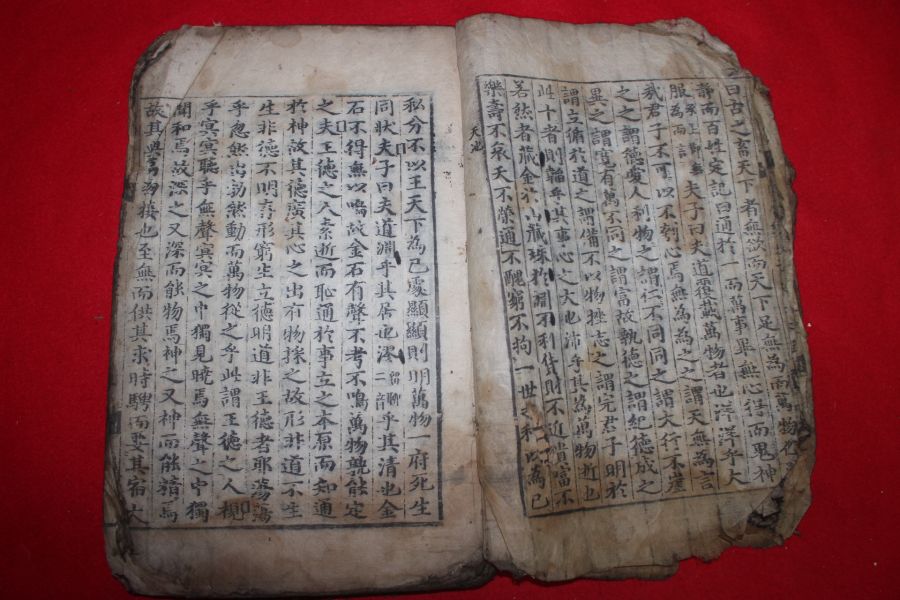 曰古之畜天下者無欲而天下足無為而萬物化
靜而百姓定記曰通於 而萬事畢無心得而鬼神
服 夫子曰夫道覆載萬物者也洋洋乎大
哉君子不可以不刳心焉無為為之之謂天無為言
之之謂德愛人利物之謂仁不同同之之謂大行不崖
異之謂寬有萬不同之謂富故執德之謂紀德成之
謂立循於道之謂備不以物挫志之謂完君子明於
此十者則韜乎其事心之大也沛乎其為萬物逝也
若然者藏金於山藏珠於淵不利貨財不近貴富不
樂壽不哀夭不榮通不醜窮不拘一世之利以為己
天地
私分不以王天下為己處顯顯則明萬物一府死生
同狀夫子曰夫道淵乎其居也漻留聊二音乎其清也金
石不得無以鳴故金石有聲不考不鳴萬物孰能定
之夫王德之人素逝而恥通於事立之本原而知通
於神故其德廣其心之出有物採之故形非道不生
生非德不明存形窮生立德明道非王德者耶蕩蕩
乎忽然出勃然動而萬物從之乎此謂王德之人視
乎冥冥聽乎無聲冥冥之中獨見曉焉無聲之中獨
聞和焉故深之又深而能物焉神之又神而能精焉
故其與萬物接也至無而供其求時騁而要其宿大